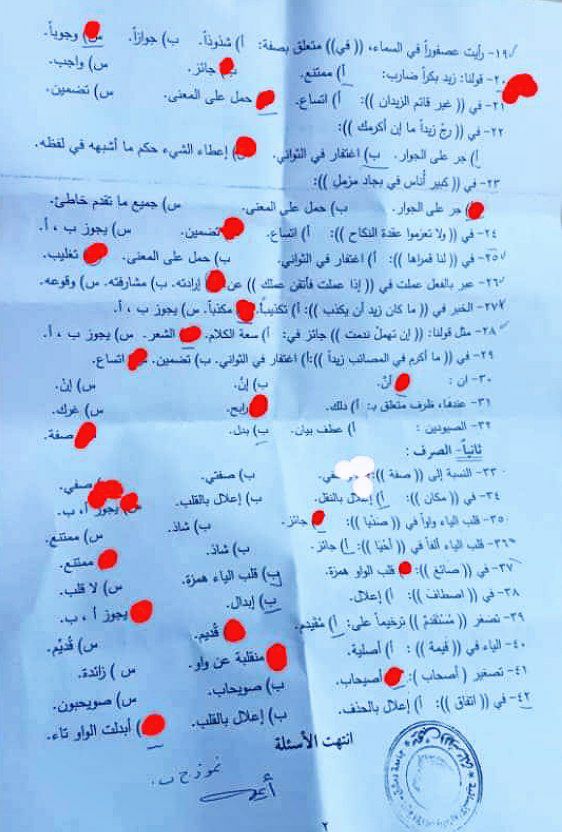 ١٩- رأيت عصفوراً في السماء، ((في)) متعلق بصفة: أ) شذوذاً. ب) جوازاً. س) وجوباً.
٢٠- قولنا: زيد بكراً ضارب: أ) ممتنع. ب) جائز. س) واجب.
٢١- في (( غير قائم الزيدان )): أ) اتساع. حمل على المعنى. س) تضمين.
٢٢- في (( رجْ زيداً ما إن أكرمك )):
أ) جر على الجوار. ب) اغتفار في الثواني. إعطاء الشيء حكم ما أشبهه في لفظه.
٢٣- في (( كبير أناس في بجاد مزمل )):
جر على الجوار. ب) حمل على المعنى. س) جميع ما تقدم خاطئ.
٢٤- في (( ولا تعزموا عقدة النكاح )): أ) اتساع. تضمين. س) يجوز ب ، أ.
٢٥- في (( لنا قمراها )): أ) اغتفار في الثواني. ب) حمل على المعنى. تغليب.
٢٦- عبر بالفعل عملت في (( إذا عملت فأتقن عملك )) عن إرادته. ب) مشارفته. س) وقوعه.
٢٧- الخبر في (( ما كان زيد أن يكذب )): أ) تكذيباً. مكذباً. س) يجوز ب ، أ.
٢٨- مثل قولنا: (( إن تهملْ ندمت )) جائز في: أ) سعة الكلام. الشعر. س) يجوز ب ، أ.
٢٩- في (( ما أكرم في المصائب زيداً )): أ) اغتفار في الثواني. ب) تضمين. اتساع.
٣٠- ان : أنّ. ب) إنّ. س) إنْ.
٣١- عندفاء، ظرف متعلق بـ: أ) ذلك. رابح. س) غرك.
٣٢- الصيودين : أ) عطف بيان. ب) بدل. صفة.
ثانياً- الصرف :
٣٣- النسبة إلى (( صفة )): ب) صفتي. صفي.
٣٤- في (( مكان )): أ) إعلال بالنقل. ب) إعلال بالقلب. س) يجوز أ، ب.
٣٥- قلب الياء واواً في (( صنديا )): جائز. ب) شاذ. س) ممتنع.
٣٦- قلب الياء ألفاً في (( أحيا )): أ) جائز. ب) شاذ. ممتنع.
٣٧- في (( صائغ )): قلب الواو همزة. ب) قلب الياء همزة. س) لا قلب.
٣٨- في (( اصطاف )): أ) إعلال. ب) إبدال. يجوز أ ، ب.
٣٩- تصغر (( مُتقدم )) ترخيماً على: أ) مُقيدم. قُديم. س) قُديِّم.
٤٠- الياء في (( قيمة )): أ) أصلية. منقلبة عن واو. س) زائدة.
٤١- تصغير ( أصحاب ): أصيحاب. ب) صويحاب. س) صويحبون.
٤٢- في (( اتفاق )): أ) إعلال بالحذف. ب) إعلال بالقلب. أبدلت الواو تاء.
انتهت الأسئلة
نموذج ب.
٢